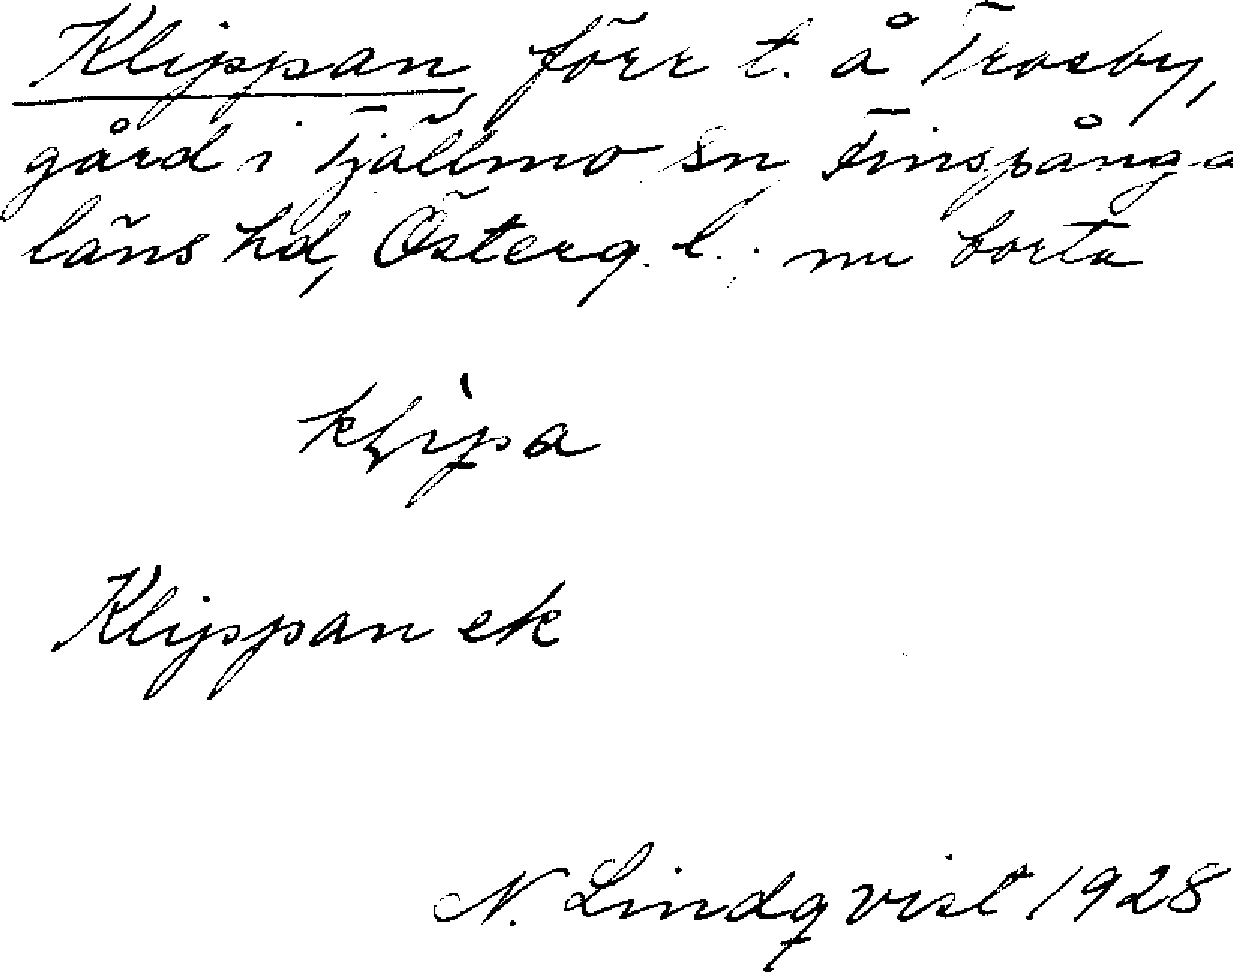 Klippan, förr t. å Trosby,
gård i Tjällmo sn, Finspånga
läns hd, Österg. l.; nu borta
Klippan ek
N. Lindqvist 1928